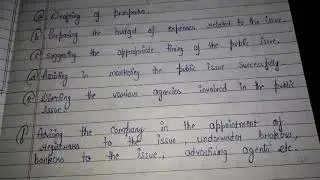 (a) Drafting of prospectus.
(b) Preparing the budget of expenses related to the issue.
(c) Suggesting the appropriate timing of the public issue.
(d) Assisting in marketing the public issue successfully
(e) Directing the various agencies involved in the public
issue.
(f) Advising the company in the appointment of
registrars to the issue, underwriter brokers,
bankers to the issue, advertising agents etc.